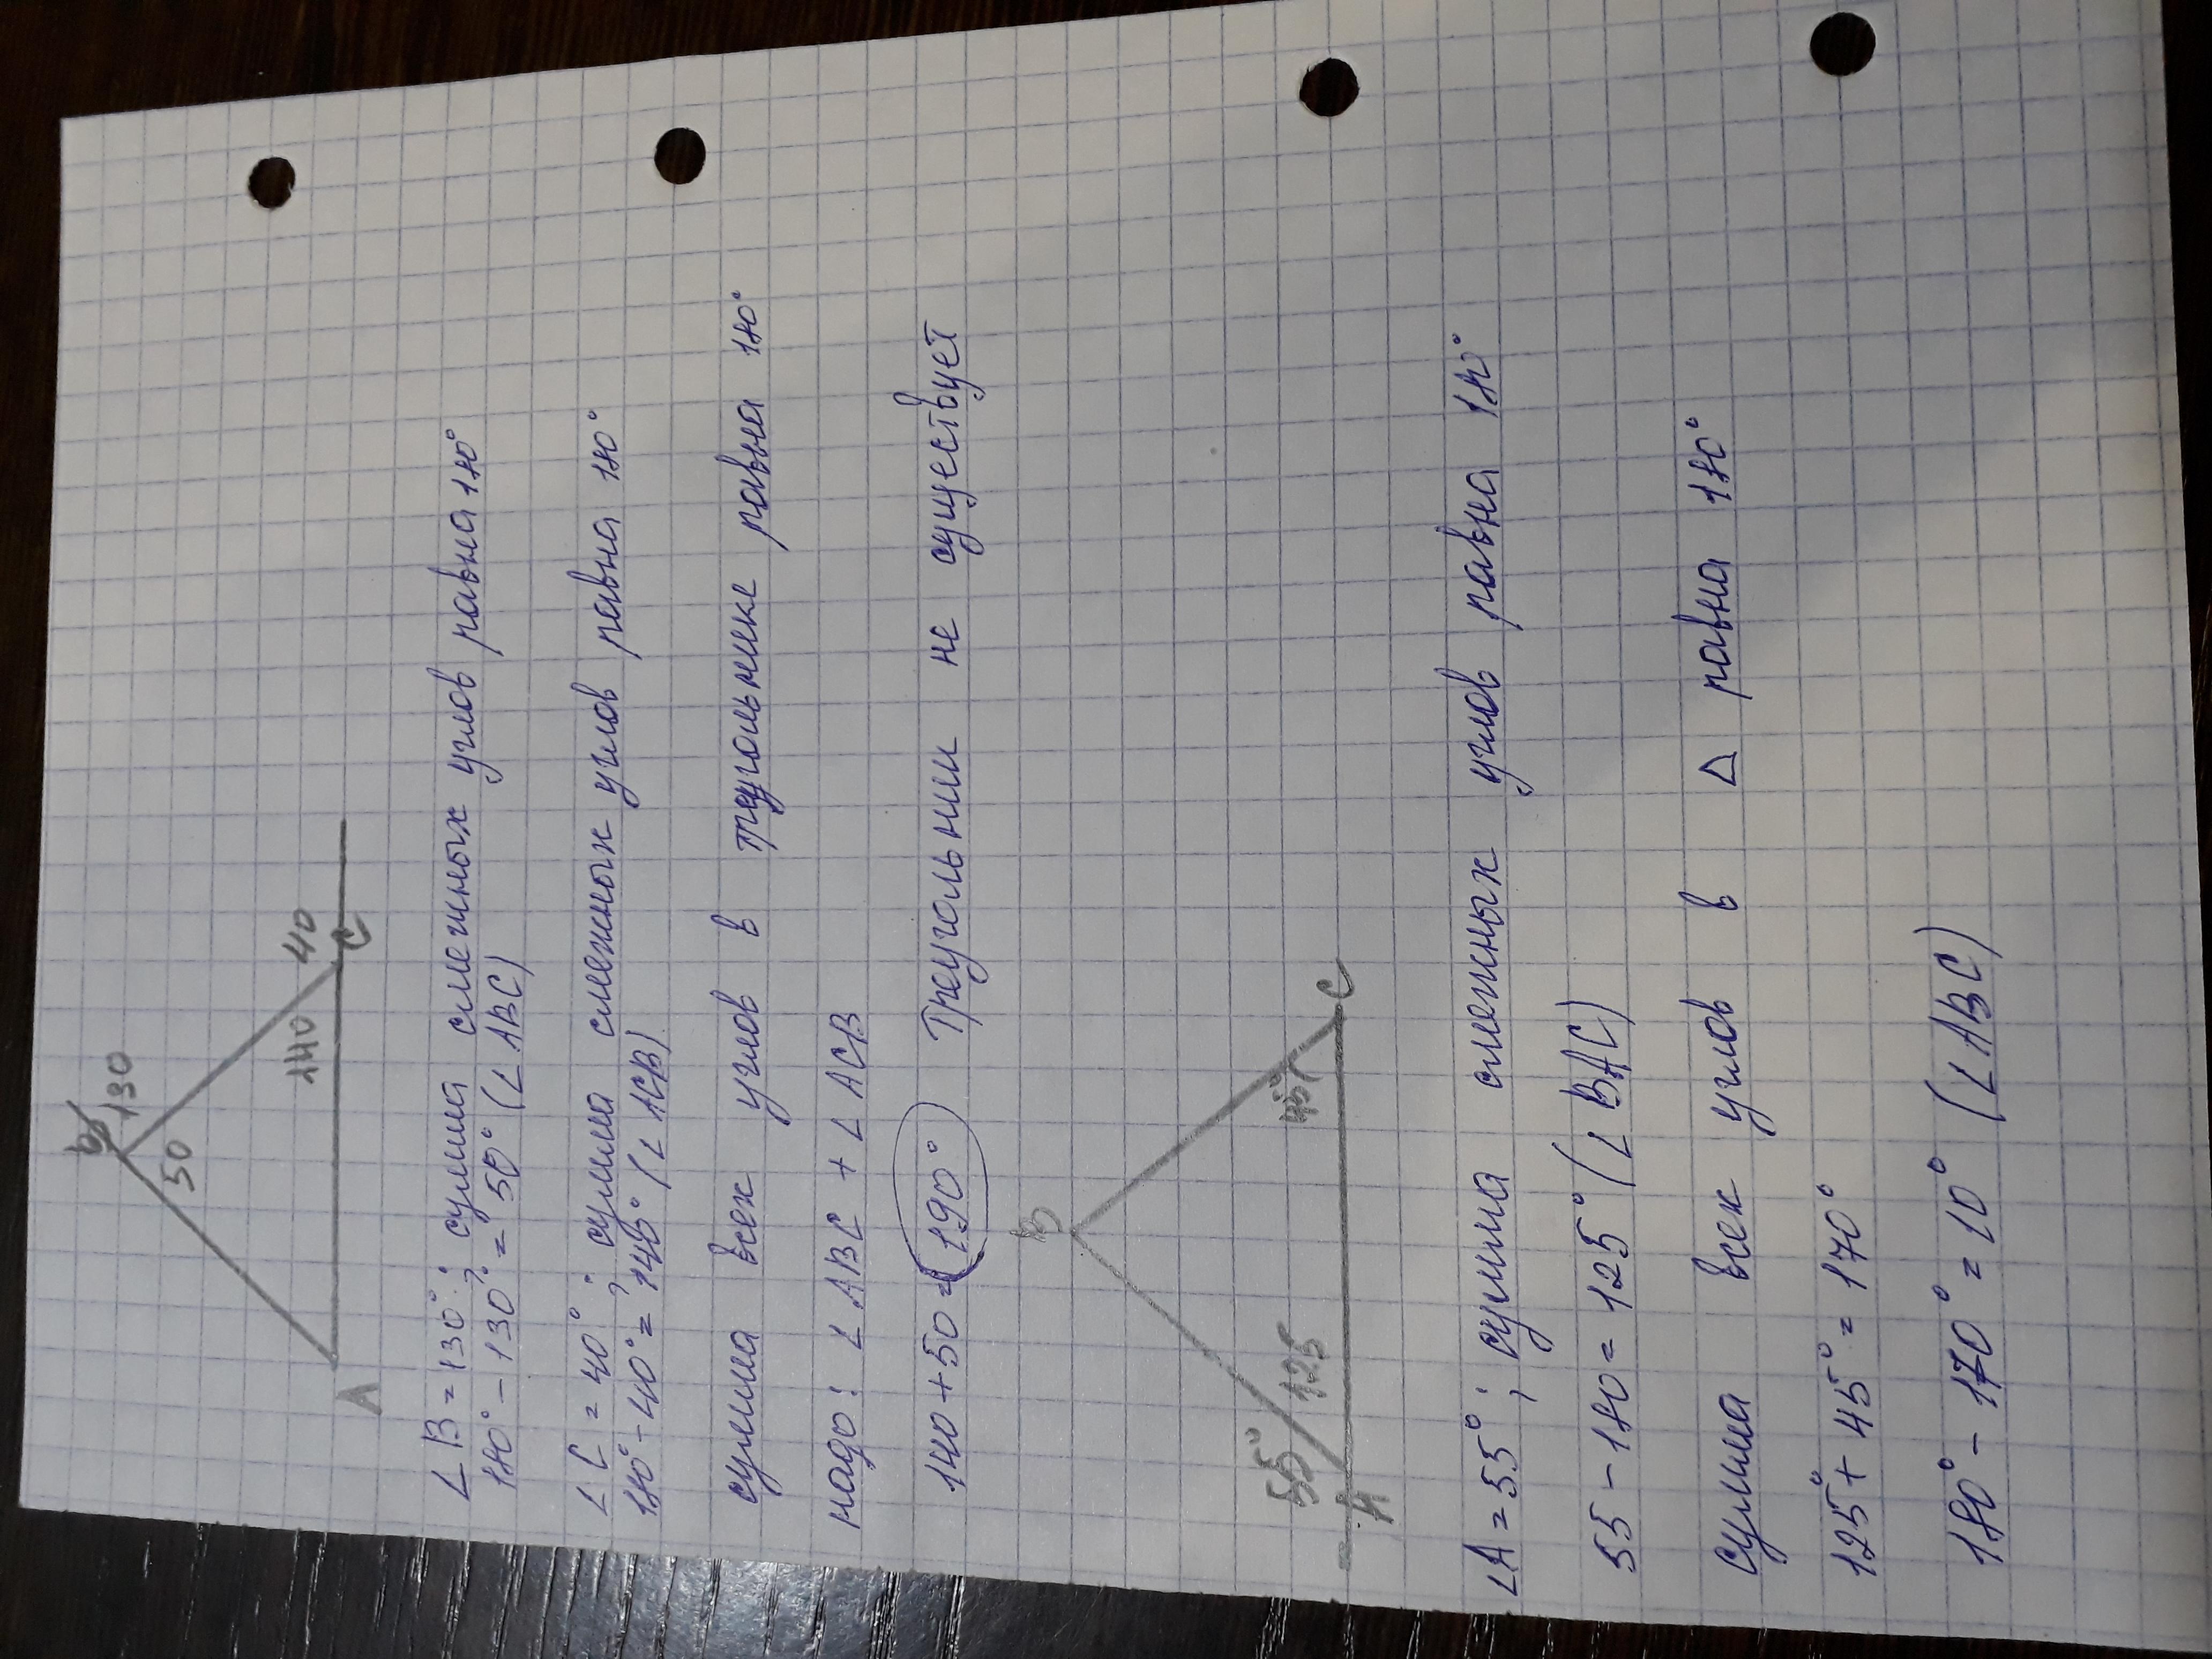 B 130
50
140 40
A C
∠B = 130°; сумма смежных углов равна 180°
180° - 130° = 50° (∠ABC)
∠C = 40°; сумма смежных углов равна 180°
180° - 40° = 140° (∠ACB)
сумма всех углов в треугольнике равна 180°
надо: ∠ABC + ∠ACB
140 + 50 = 190° Треугольник не существует
B
55° 125 45°
A C
∠A = 55°; сумма смежных углов равна 180°
55 - 180 = 125° (∠BAC)
сумма всех углов в △ равна 180°
125° + 45° = 170°
180° - 170° = 10° (∠ABC)